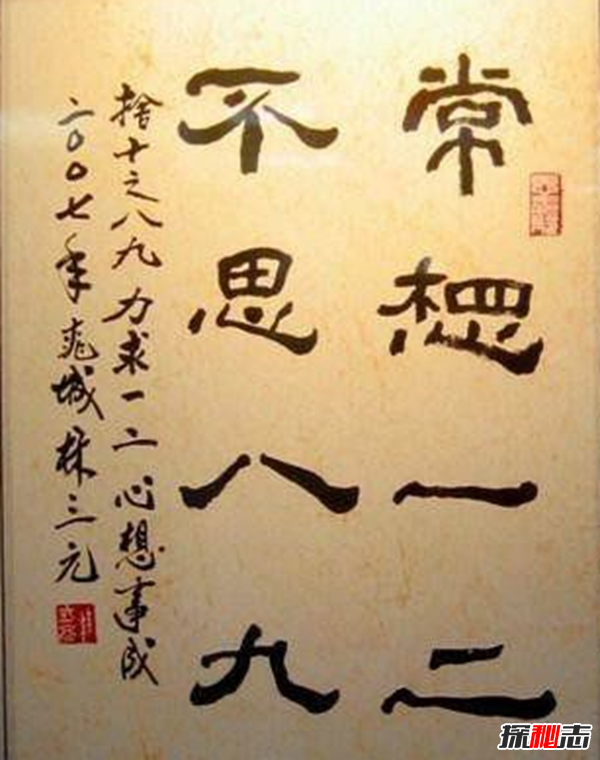 常想一二
不思八九
捨十之八九力求一二心想事成
二〇〇七年 城林三元
探秘志